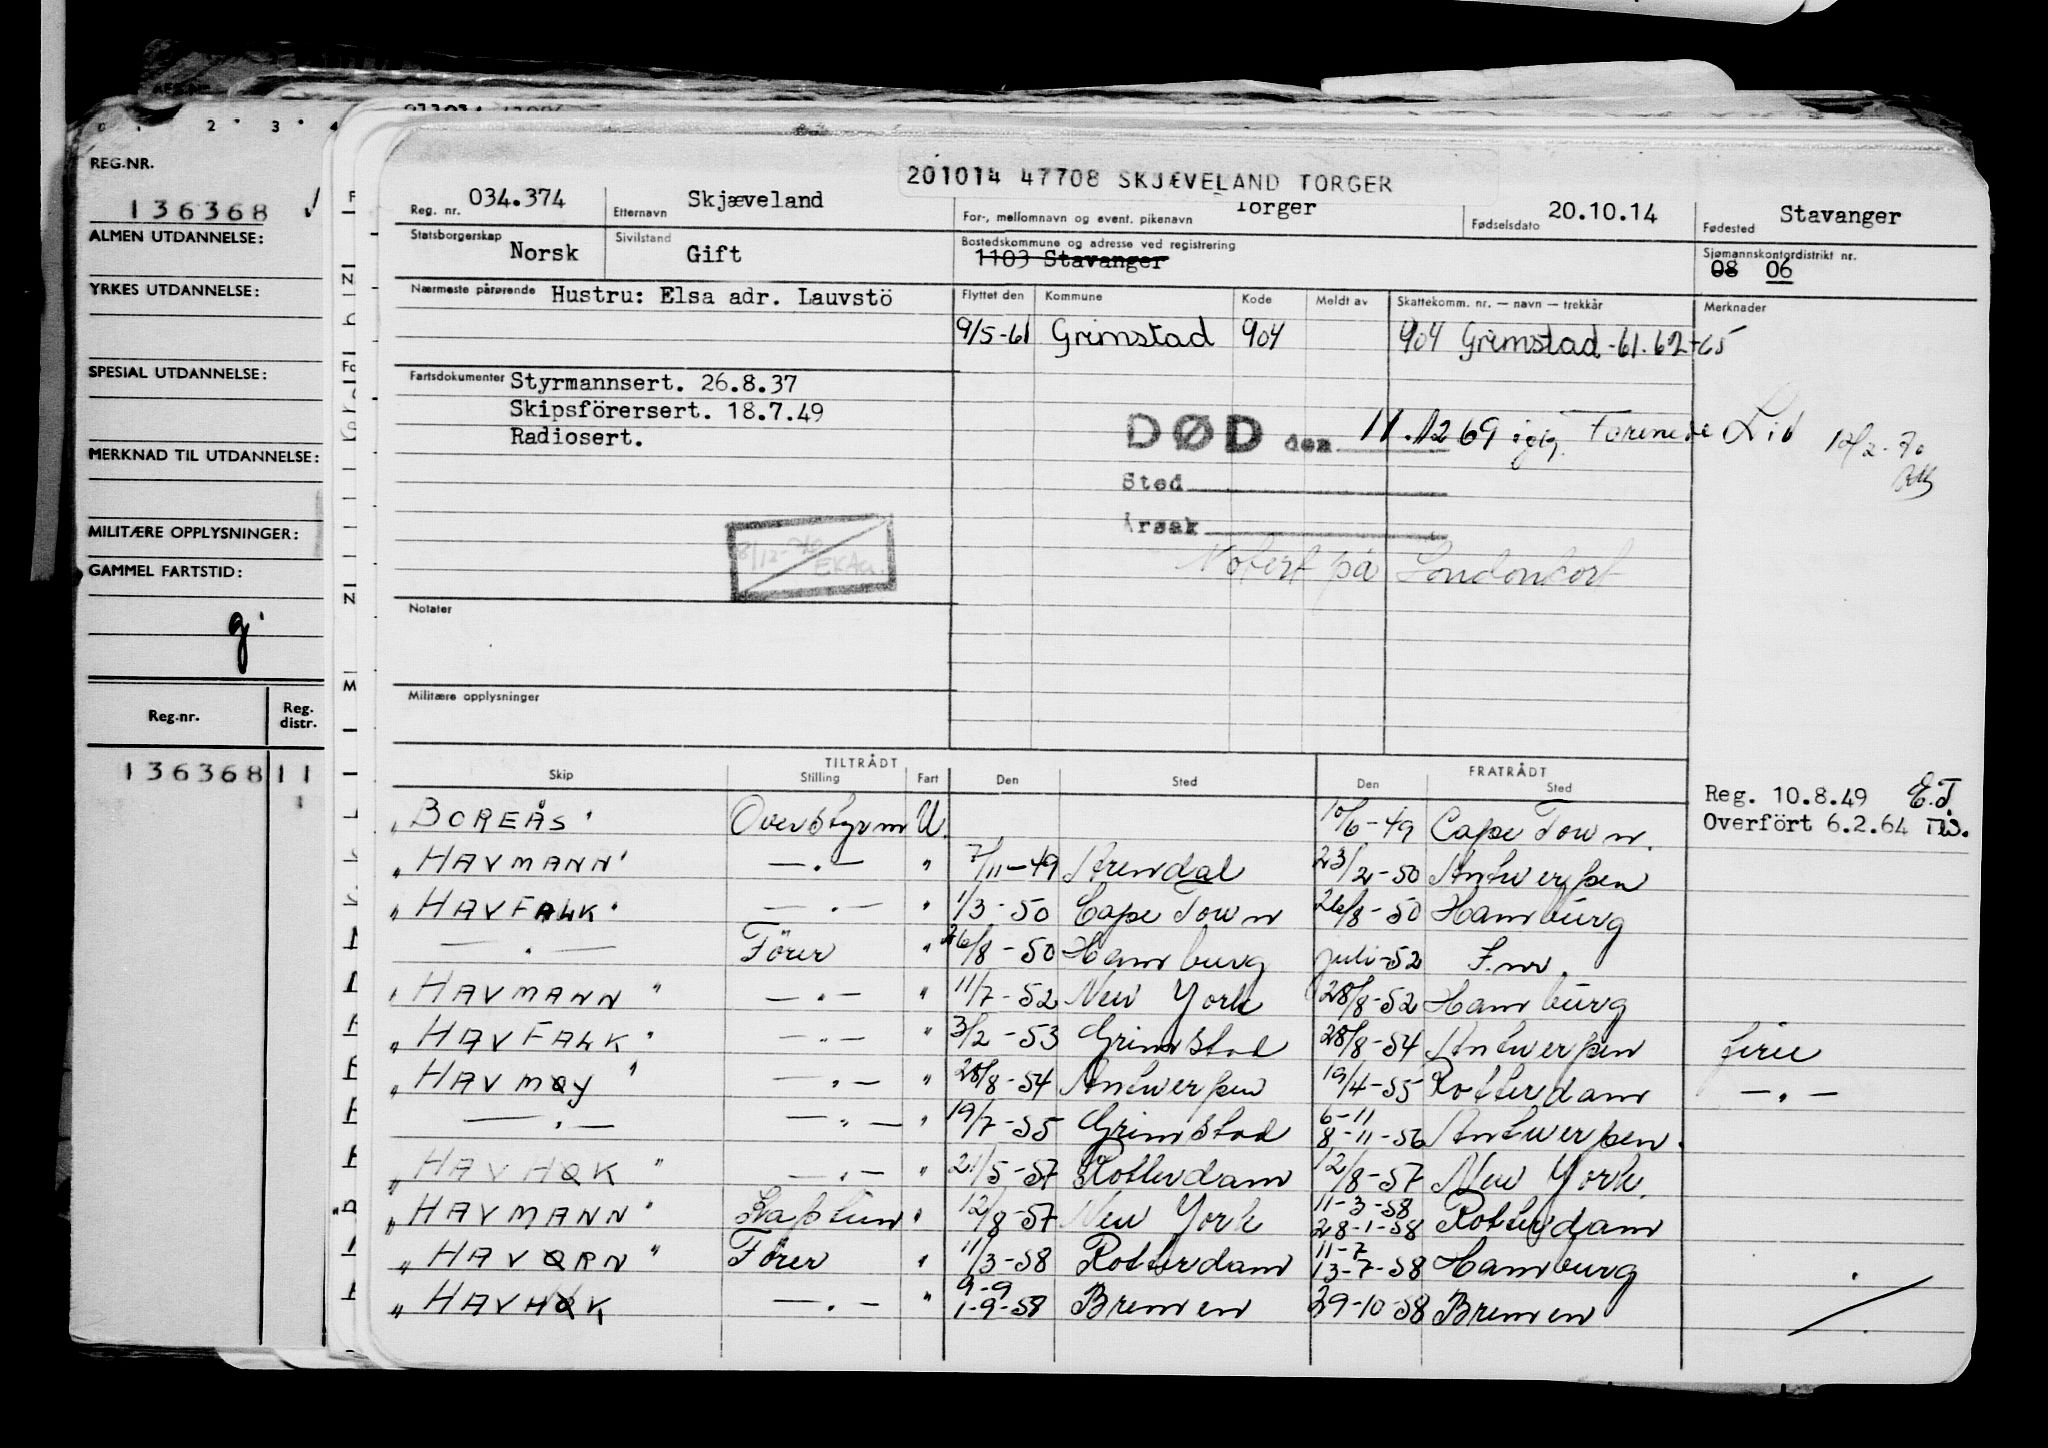 REG.NR.
136368
ALMEN UTDANNELSE:
YRKES UTDANNELSE:
SPESIAL UTDANNELSE:
MERKNAD TIL UTDANNELSE:
MILITÆRE OPPLYSNINGER:
GAMMEL FARTSTID:
g.
Reg.nr. Reg. distr.
136368 11
201014 47708 SKJÆVELAND TORGER
034.374 Skjæveland Torger 20.10.14 Stavanger
Reg. nr. Etternavn For-, mellomnavn og event. pikenavn Fødselsdato Fødested
Statsborgerskap Norsk Sivilstand Gift Bostedskommune og adresse ved registrering 1103 Stavanger Sjømannskontordistrikt nr. 08 06
Nærmeste pårørende Hustru: Elsa adr. Lauvstö Flyttet den Kommune Kode Meldt av Skattekomm. nr. — navn — trekkår Merknader
9/5-61 Grimstad 904 904 Grimstad -61.62+65
Fartsdokumenter Styrmannsert. 26.8.37
Skipsförersert. 18.7.49
Radiosert.
DØD den 11.12 69 Forenede Liv 12/2-70
Sted
Årsak
Notert på Londonkort
Notater
Militære opplysninger
TILTRÅDT FRATRÅDT
Skip Stilling Fart Den Sted Den Sted
Reg. 10.8.49 E.T.
Overfört 6.2.64
"BOREÅS" Overstyrm U. 10/6-49 Cape Town.
"HAVMANN" —.— " 7/11-49 Arendal 23/2-50 Antwerpen
"HAVFALK" —.— " 1/3-50 Cape Town 26/8-50 Hamburg
—.— Förer " 26/8-50 Hamburg juli-52 F.nr.
"HAVMANN" —.— " 11/7-52 New York 28/8-52 Hamburg
"HAVFALK" —.— " 3/2-53 Grimstad 28/8-54 Antwerpen ferie
"HAVMØY" —.— " 28/8-54 Antwerpen 19/4-55 Rotterdam —.—
—.— —.— " 19/7-55 Grimstad 6-11 8-11-56 Antwerpen.
"HAVHØK" —.— " 21/5-57 Rotterdam 12/8-57 New York.
"HAVMANN" Kaptein " 12/8-57 New York 11-3-58 28-1-58 Rotterdam
"HAVØRN" Förer " 11/3-58 Rotterdam 11-7 13-7-58 Hamburg
"HAVHØK —.— " 9-9 1-9-58 Bremen 29-10-58 Bremen